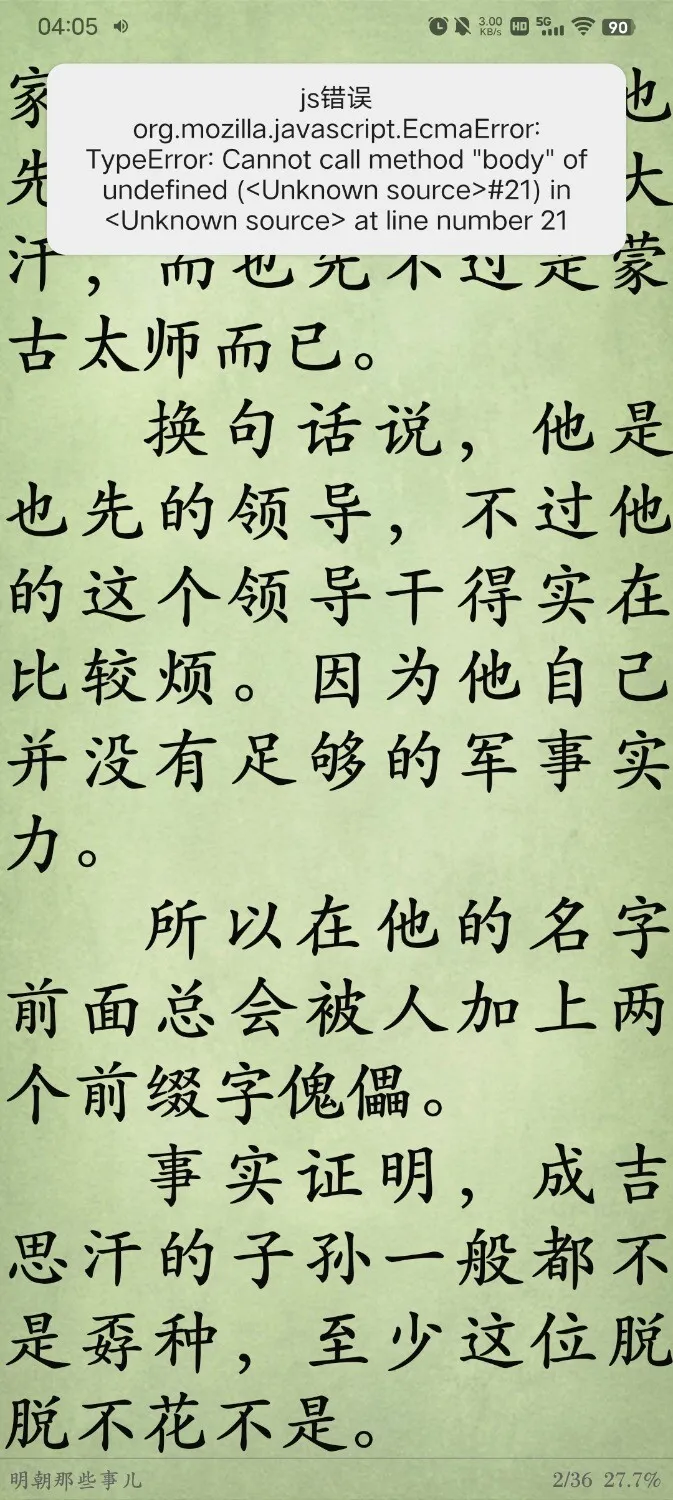 04:05 3.00 KB/s HD 5G 90
家 也
js错误
org.mozilla.javascript.EcmaError:
先 大
TypeError: Cannot call method "body" of
undefined (<Unknown source>#21) in
<Unknown source> at line number 21
汗，而也先不过是蒙
古太师而已。
换句话说，他是
也先的领导，不过他
的这个领导干得实在
比较烦。因为他自己
并没有足够的军事实
力。
所以在他的名字
前面总会被人加上两
个前缀字傀儡。
事实证明，成吉
思汗的子孙一般都不
是孬种，至少这位脱
脱不花不是。
明朝那些事儿 2/36 27.7%